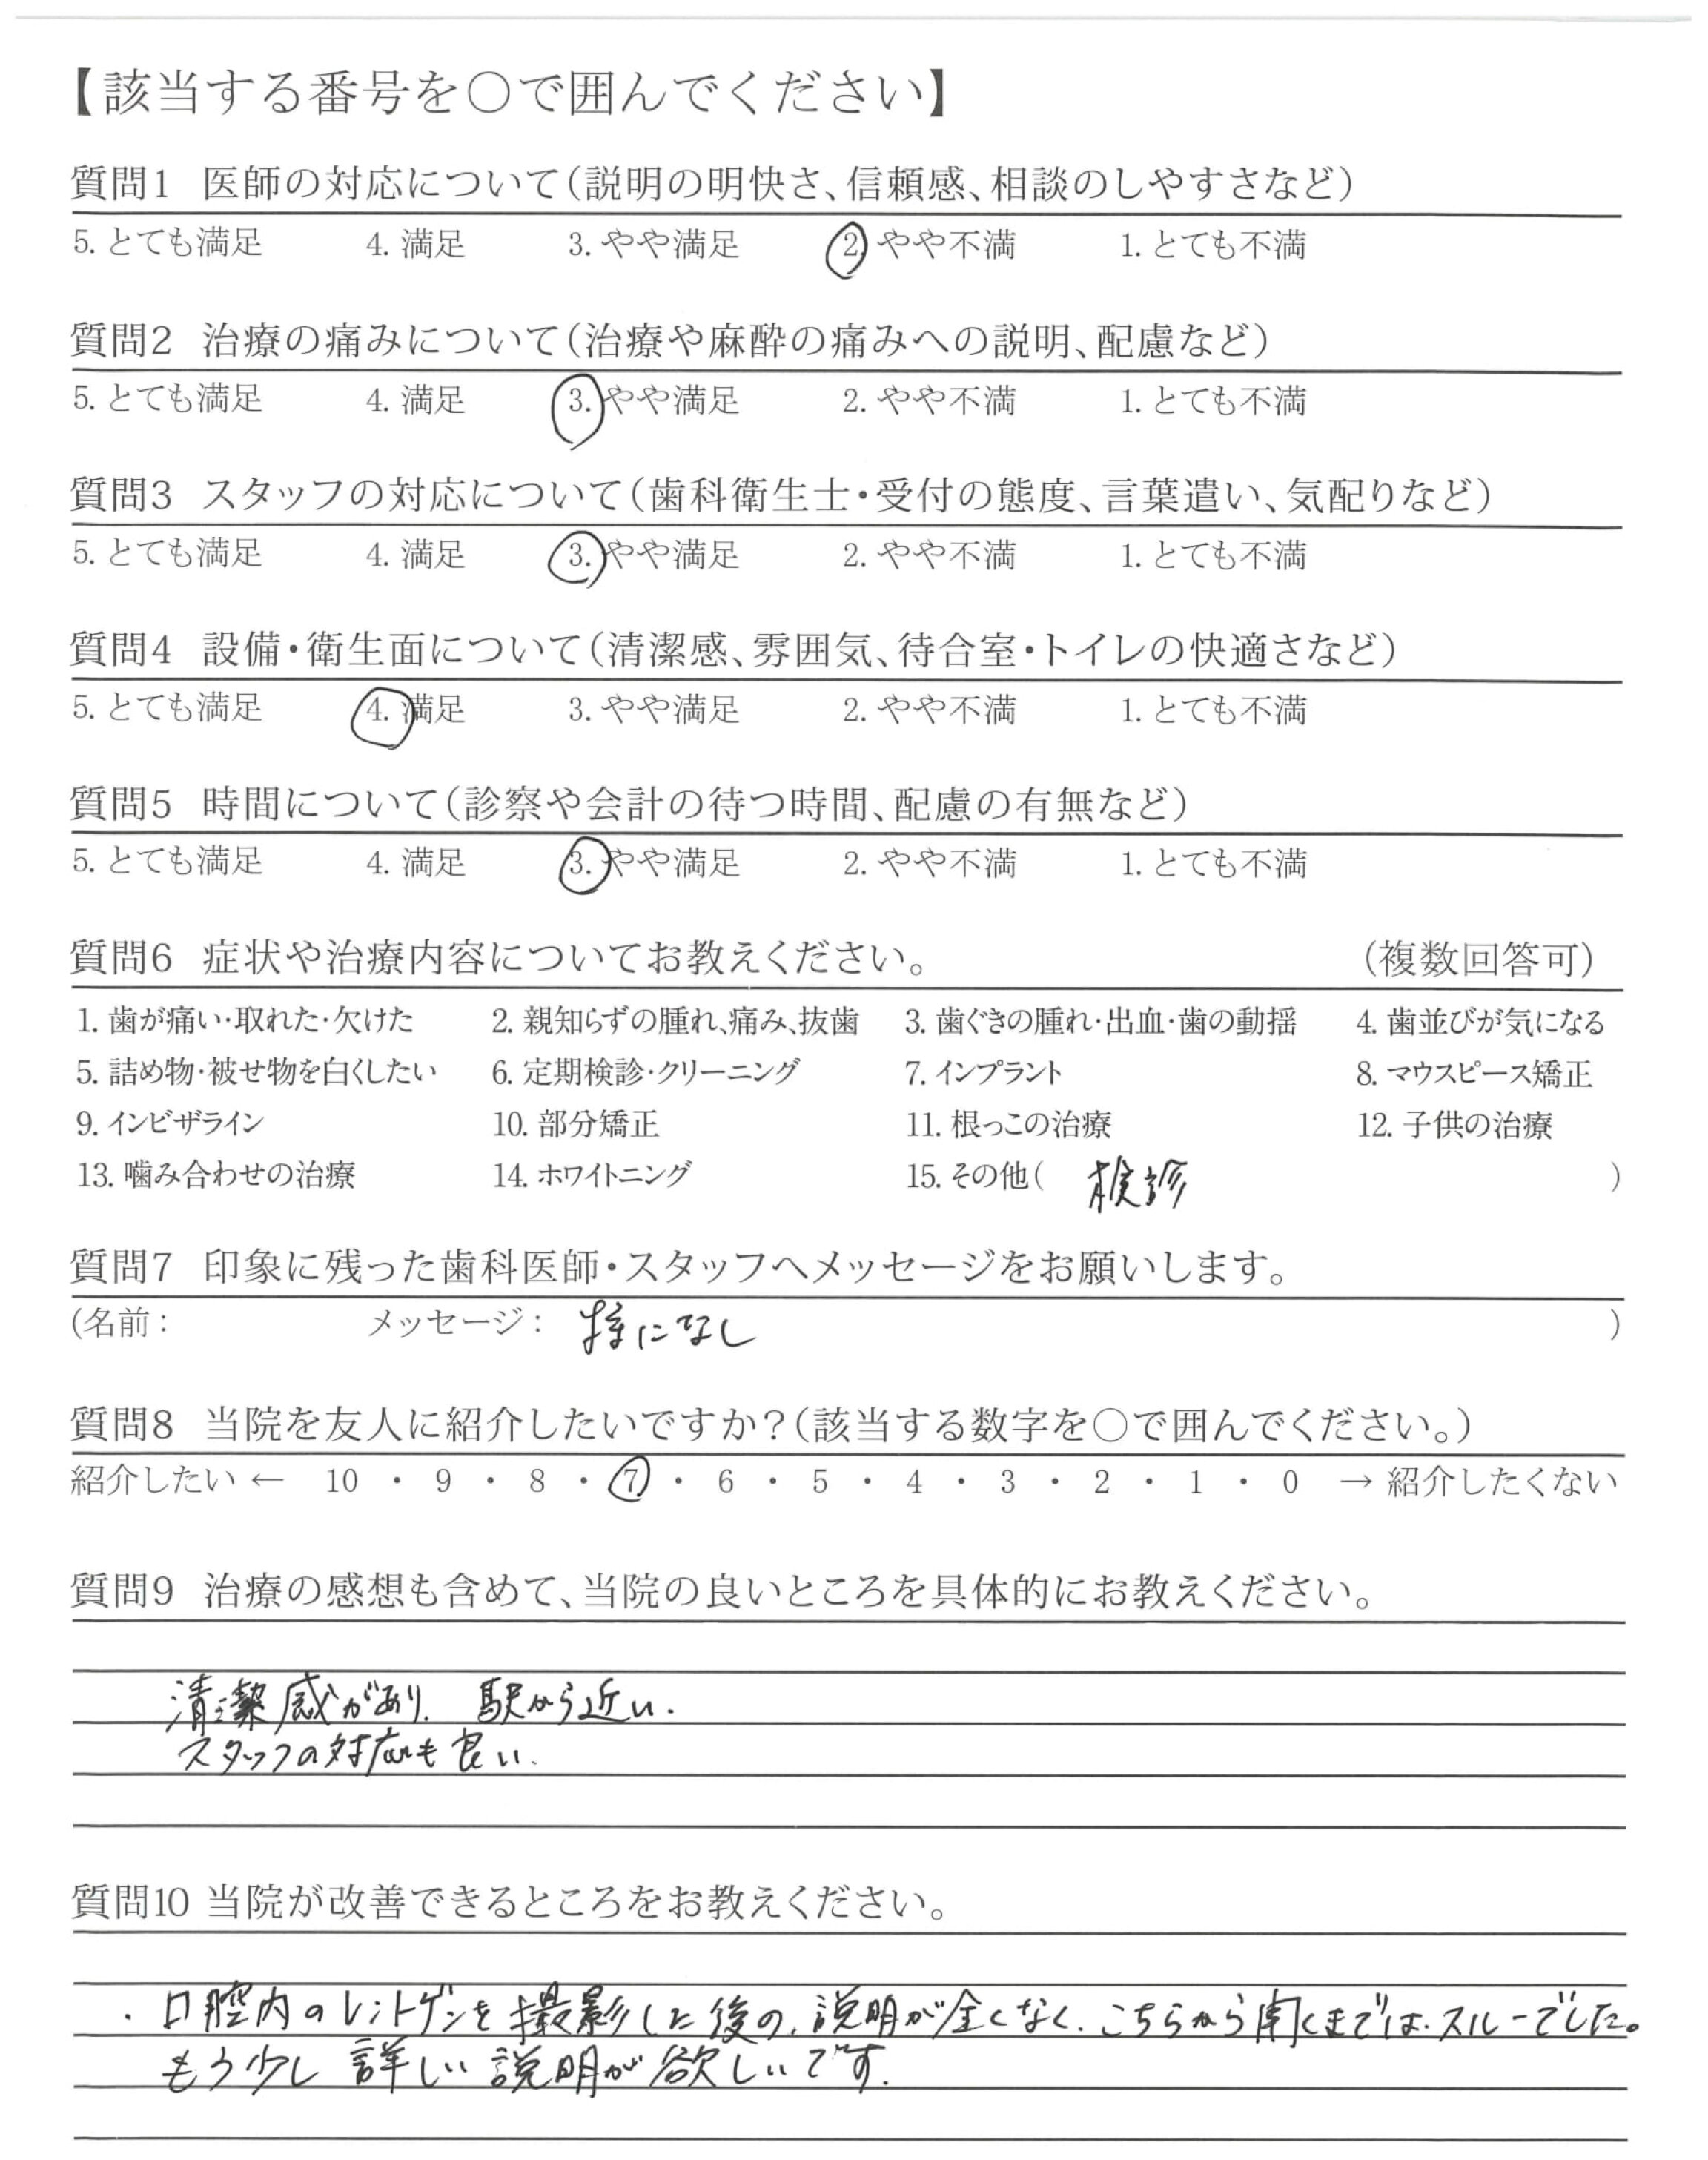 【該当する番号を○で囲んでください】
質問1 医師の対応について(説明の明快さ、信頼感、相談のしやすさなど)
5. とても満足 4. 満足 3. やや満足 2. やや不満 1. とても不満
質問2 治療の痛みについて(治療や麻酔の痛みへの説明、配慮など)
5. とても満足 4. 満足 3. やや満足 2. やや不満 1. とても不満
質問3 スタッフの対応について(歯科衛生士・受付の態度、言葉遣い、気配りなど)
5. とても満足 4. 満足 3. やや満足 2. やや不満 1. とても不満
質問4 設備・衛生面について(清潔感、雰囲気、待合室・トイレの快適さなど)
5. とても満足 4. 満足 3. やや満足 2. やや不満 1. とても不満
質問5 時間について(診察や会計の待つ時間、配慮の有無など)
5. とても満足 4. 満足 3. やや満足 2. やや不満 1. とても不満
質問6 症状や治療内容についてお教えください。 (複数回答可)
1. 歯が痛い・取れた・欠けた 2. 親知らずの腫れ、痛み、抜歯 3. 歯ぐきの腫れ・出血・歯の動揺 4. 歯並びが気になる
5. 詰め物・被せ物を白くしたい 6. 定期検診・クリーニング 7. インプラント 8. マウスピース矯正
9. インビザライン 10. 部分矯正 11. 根っこの治療 12. 子供の治療
13. 噛み合わせの治療 14. ホワイトニング 15. その他( 検診 )
質問7 印象に残った歯科医師・スタッフへメッセージをお願いします。
(名前： メッセージ： 特になし )
質問8 当院を友人に紹介したいですか？(該当する数字を○で囲んでください。)
紹介したい ← 10 ・ 9 ・ 8 ・ 7 ・ 6 ・ 5 ・ 4 ・ 3 ・ 2 ・ 1 ・ 0 → 紹介したくない
質問9 治療の感想も含めて、当院の良いところを具体的にお教えください。
清潔感があり、駅から近い.
スタッフの対応も良い.
質問10 当院が改善できるところをお教えください。
・口腔内のレントゲンを撮影した後の、説明が全くなく、こちらから聞くまでは、スルーでした。
もう少し 詳しい説明が欲しいです.